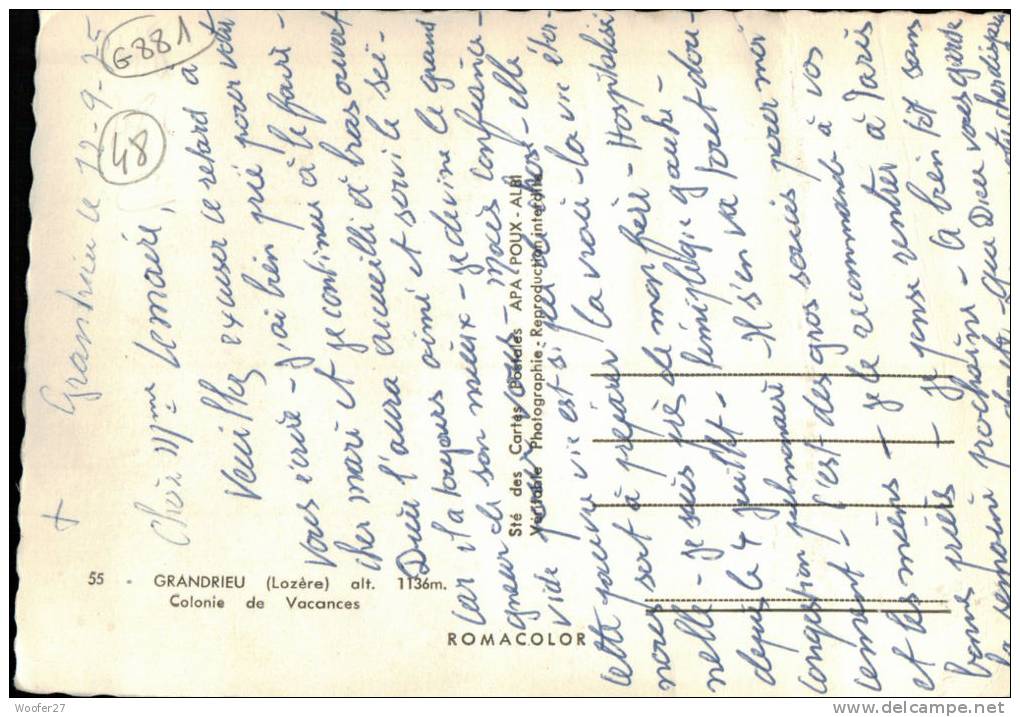 + Grandrieu le 12-9-75
G881
48
Chère Mme Lemaire,
Veuillez excuser ce retard à
vous écrire - j'ai bien prié pour votre
cher mari et je continue à le faire -
Dieu l'aura accueilli à bras ouvert
car il a toujours aimé et servi le
de son mieux - je devine le grand
vide pour vous - Mais confiance -
cette pauvre vie est si peu de chose - elle
nous sert à préparer la vraie - la vie éter-
nelle - je suis près de mon frère - Hospitalisé
depuis le 4 juillet - hémiplégie gauche -
congestion pulmonaire - Il s'en va tout dou-
cement - c'est des gros soucis pour moi
et les miens - je le recommande à vos
bonnes prières - je pense rentrer à Paris
la semaine prochaine - la bien
Que Dieu vous garde
55 - GRANDRIEU (Lozère) alt. 1136m.
Colonie de Vacances
ROMACOLOR
Sté des Cartes Postales APA POUX - ALBI
Véritable Photographie - Reproduction interdite
Woofer27
delcampe.net